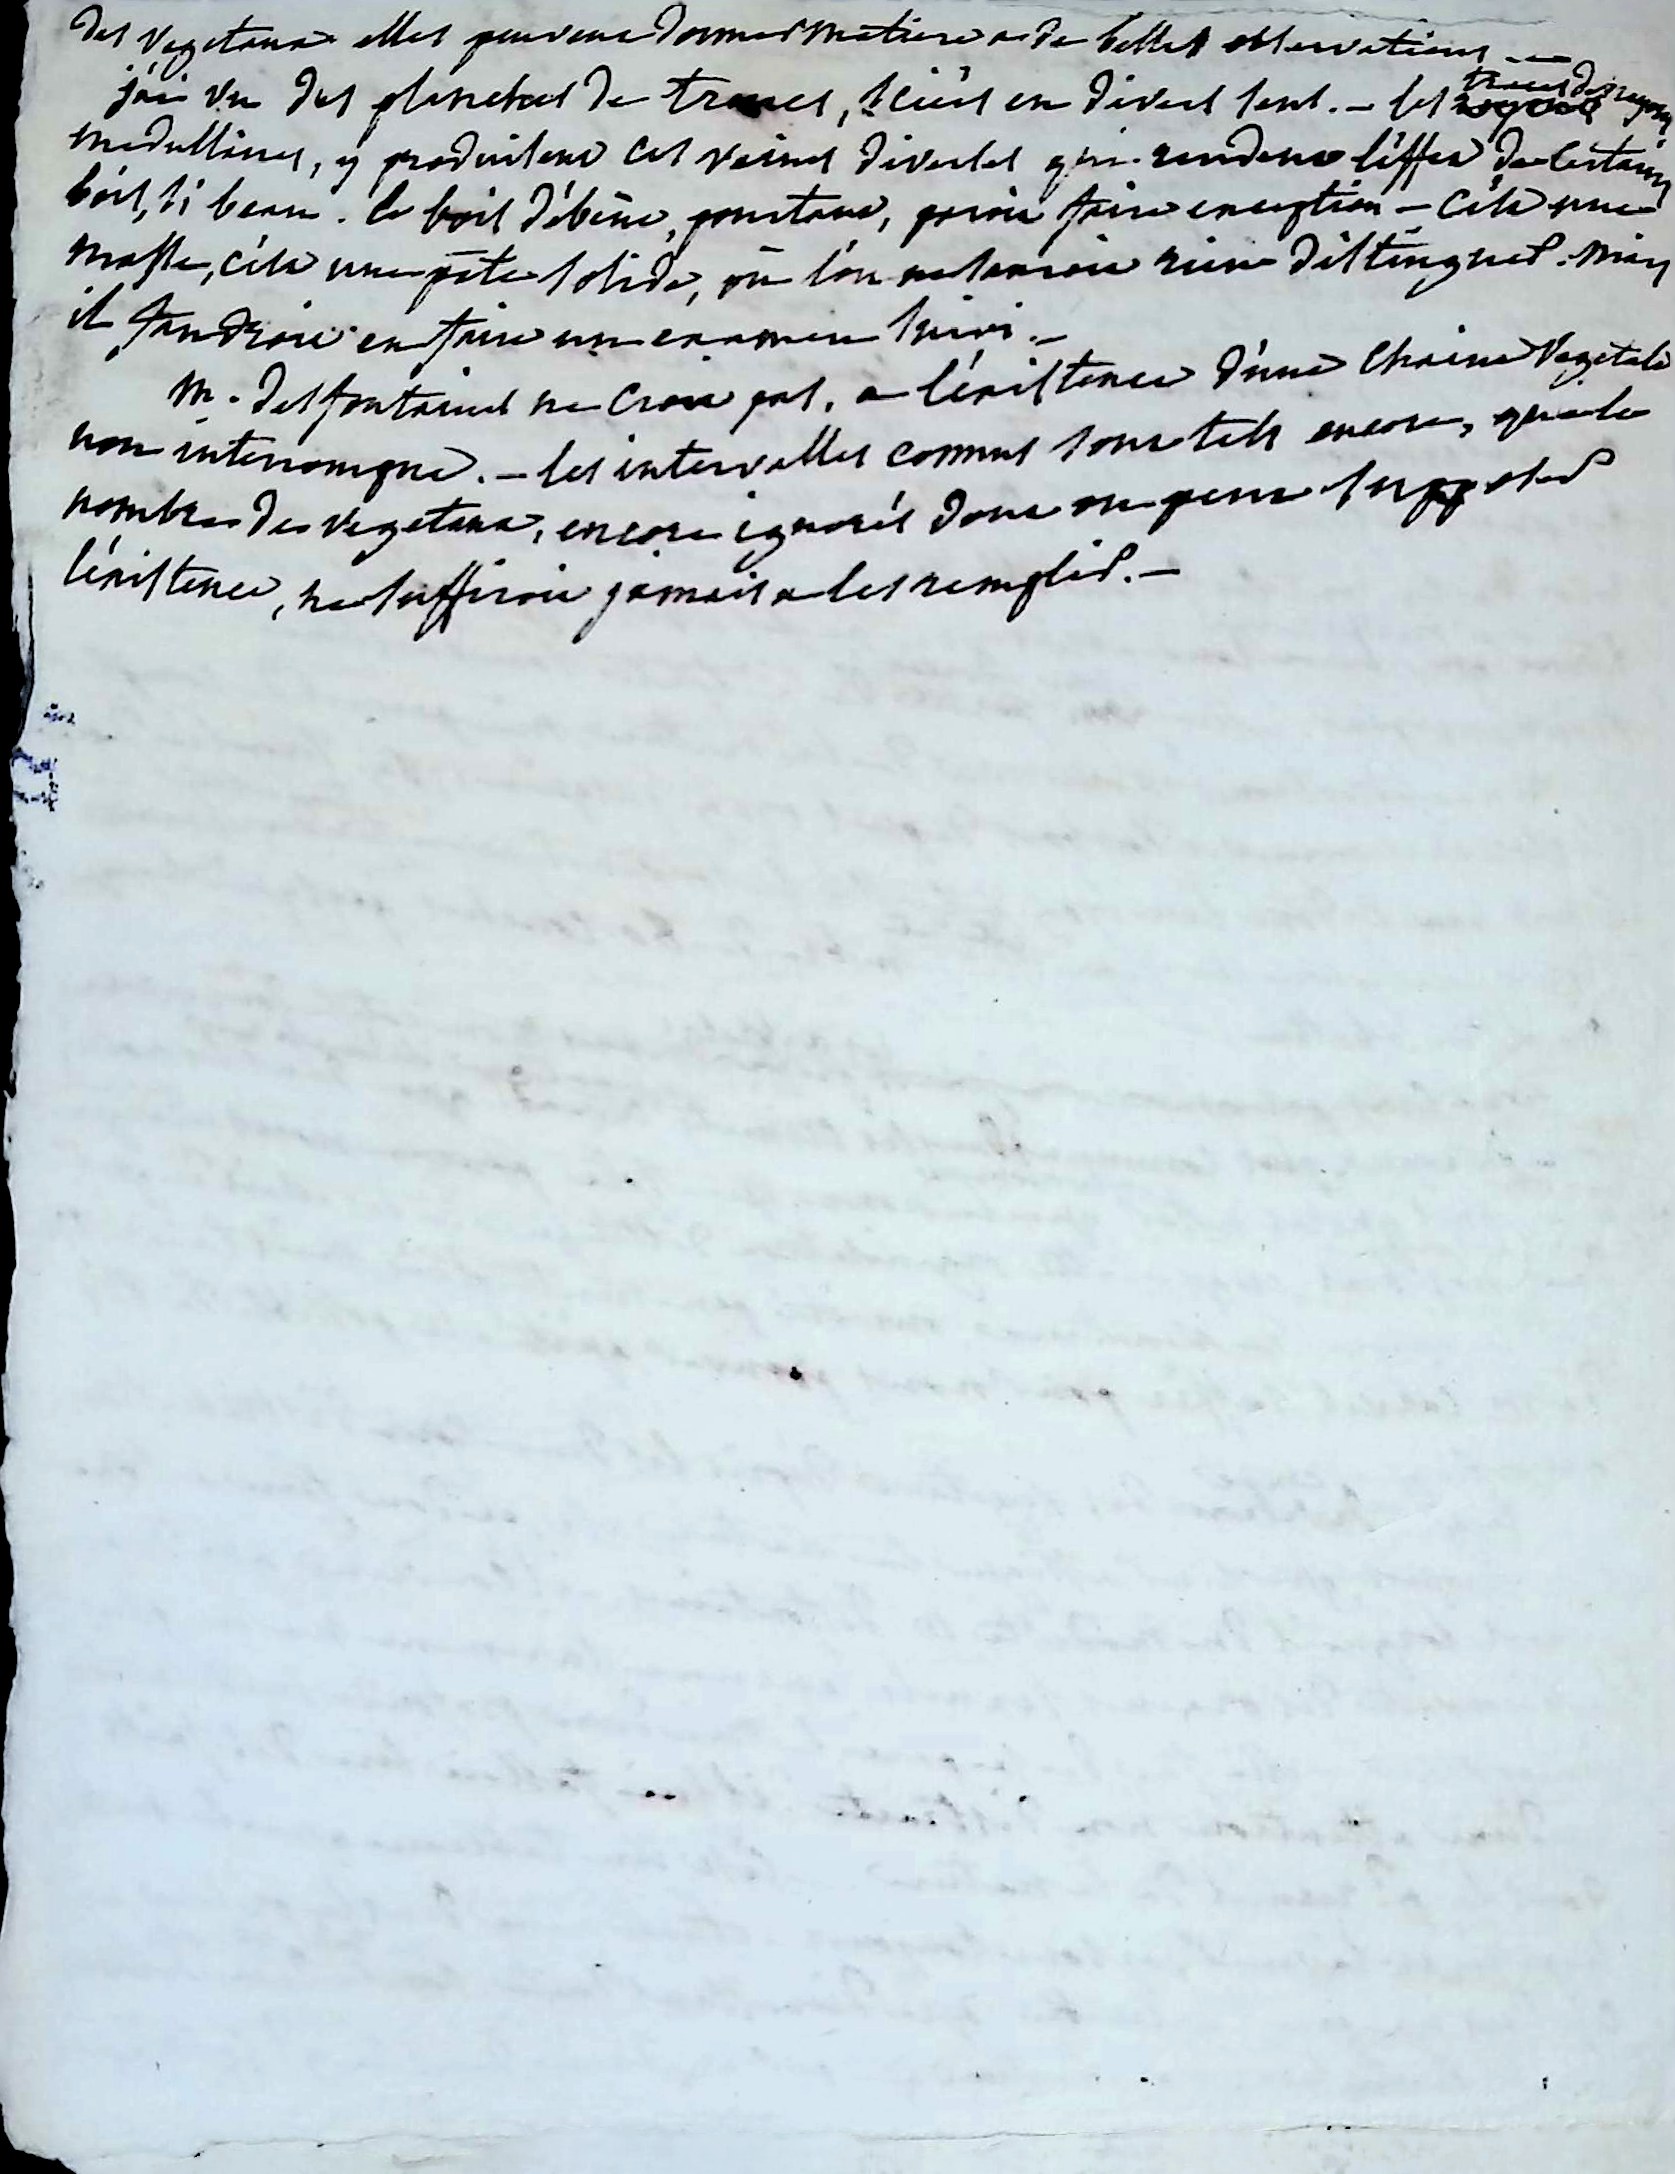 des vegetaux elles peuvent donner matiere a de belles observations. —
j'ai vu des planches de troncs, sciés en divers sens. — les traces des rayons
medullaires, y produisent ces veines diverses qui rendent l'effet de certains
bois, si beau. le bois d'ébène, pourtant, paroit faire exception — c'est une
masse, c'est une pâte solide, où l'on ne sauroit rien distinguer. mais
il faudroit en faire un examen suivi. —
M. Desfontaines ne croit pas, a l'éxistence d'une chaine vegetale
non interrompue. — les intervalles connus sont tels encore, que le
nombre de vegetaux, encore ignorés dont on peut supposer
l'éxistence, ne suffiroit jamais a les remplir. —